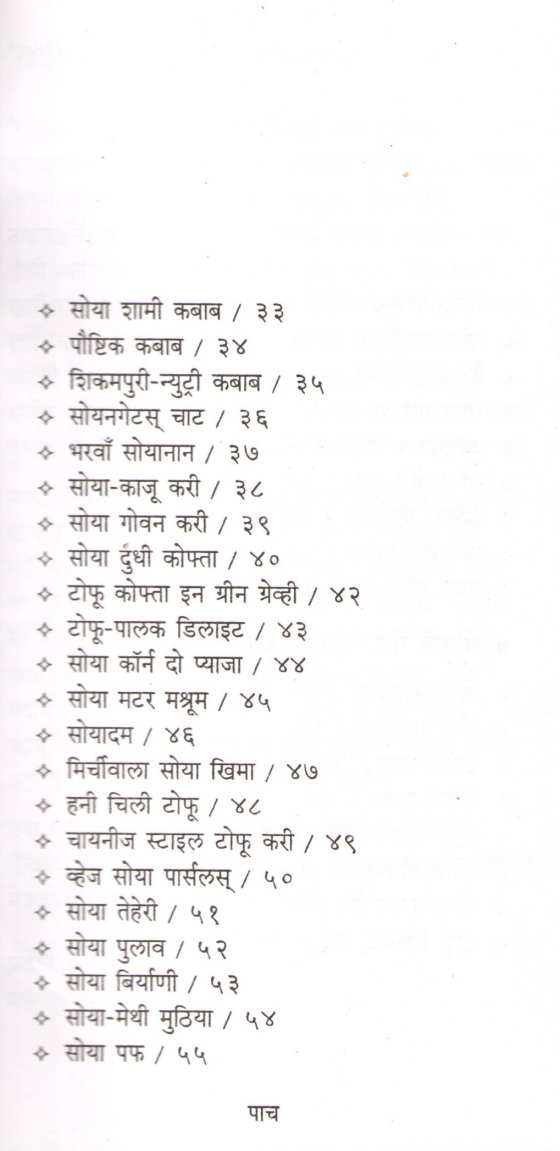 ❖ सोया शामी कबाब / ३३
❖ पौष्टिक कबाब / ३४
❖ शिकमपुरी-न्युट्री कबाब / ३५
❖ सोयनगेटस् चाट / ३६
❖ भरवाँ सोयानान / ३७
❖ सोया-काजू करी / ३८
❖ सोया गोवन करी / ३९
❖ सोया दुंधी कोफ्ता / ४०
❖ टोफू कोफ्ता इन ग्रीन ग्रेव्ही / ४२
❖ टोफू-पालक डिलाइट / ४३
❖ सोया कॉर्न दो प्याजा / ४४
❖ सोया मटर मश्रूम / ४५
❖ सोयादम / ४६
❖ मिर्चीवाला सोया खिमा / ४७
❖ हनी चिली टोफू / ४८
❖ चायनीज स्टाइल टोफू करी / ४९
❖ व्हेज सोया पार्सलस् / ५०
❖ सोया तेहेरी / ५१
❖ सोया पुलाव / ५२
❖ सोया बिर्याणी / ५३
❖ सोया-मेथी मुठिया / ५४
❖ सोया पफ / ५५
पाच